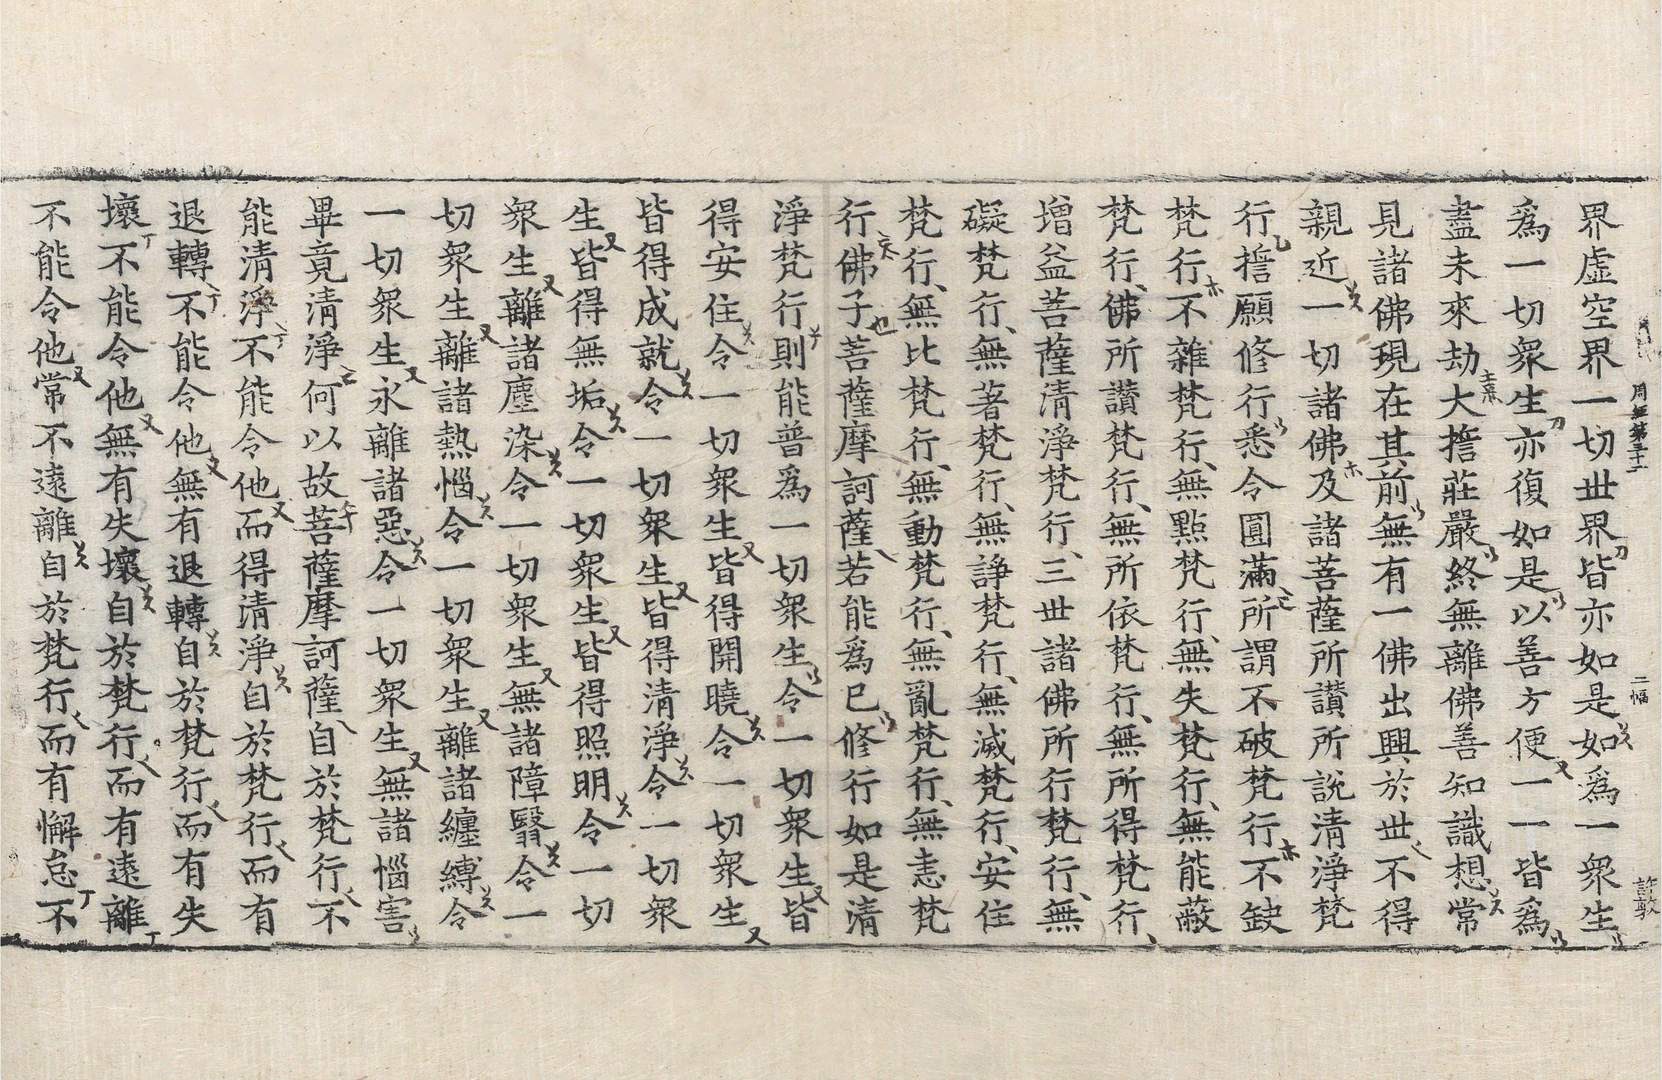 界虛空界一切世界皆亦如是如爲一衆生
爲一切衆生亦復如是以善方便一一皆爲
盡未來劫大擔莊嚴終無離佛善知識想常
見諸佛現在其前無有一佛出興於世不得
親近一切諸佛及諸菩薩所讃所說清淨梵
行擔願修行悉令圓滿所謂不破梵行不缺
梵行不雜梵行無點梵行無失梵行無能蔽
梵行佛所讃梵行無所依梵行無所得梵行
增益菩薩清淨梵行三世諸佛所行梵行無
礙梵行無著梵行無諍梵行無滅梵行安住
梵行無比梵行無動梵行無亂梵行無恚梵
行佛子菩薩摩訶薩若能爲已修行如是清
淨梵行則能普爲一切衆生令一切衆生皆
得安住令一切衆生皆得開曉令一切衆生
皆得成就令一切衆生皆得清淨令一切衆
生皆得無垢令一切衆生皆得照明令一切
衆生離諸塵染令一切衆生無諸障翳令一
切衆生離諸熱惱令一切衆生離諸纏縛令
一切衆生永離諸惡令一切衆生無諸惱害
畢竟清淨何以故菩薩摩訶薩自於梵行不
能清淨不能令他而得清淨自於梵行而有
退轉不能令他無有退轉自於梵行而有失
壞不能令他無有失壞自於梵行而有遠離
不能令他常不遠離自於梵行而有懈怠不
周經第三十二
二幅